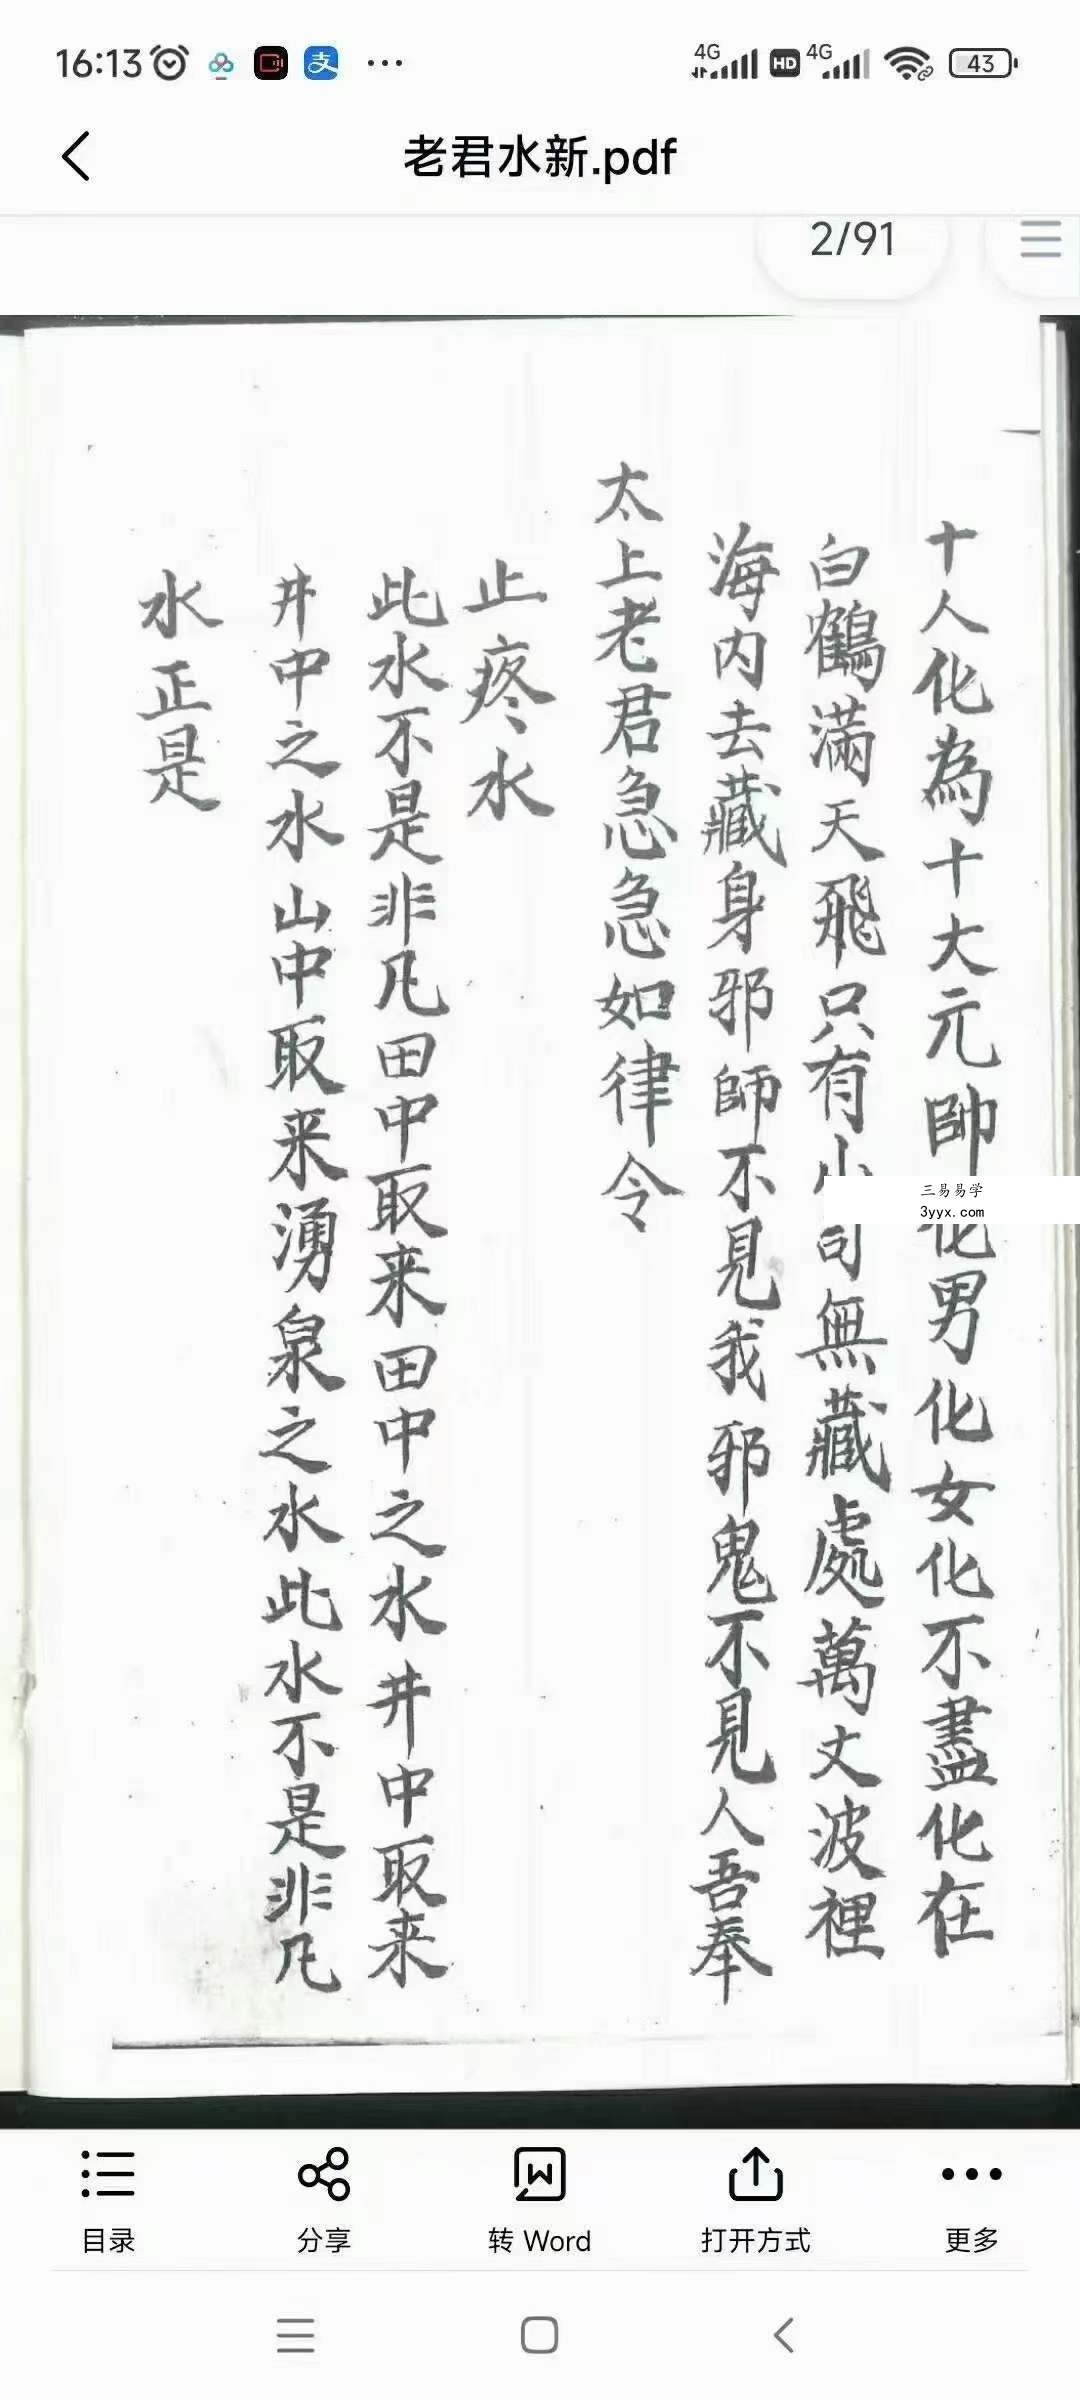 16:13
4G HD 4G 43
老君水新.pdf
2/91
十人化為十大元帥化男化女化不盡化在
白鶴滿天飛只有小司無藏處萬丈波裡
海内去藏身邪師不見我邪鬼不見人吾奉
太上老君急急如律令
止疼水
此水不是非凡田中取来田中之水井中取来
井中之水山中取来湧泉之水此水不是非凡
水正是
三易易学
3yyx.com
目录
分享
转 Word
打开方式
更多